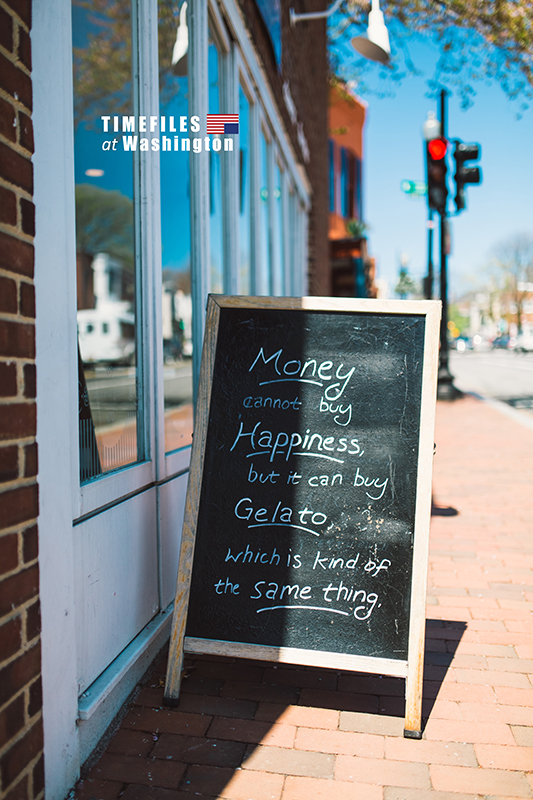 TIMEFILES
at Washington
Money
cannot buy
Happiness,
but it can buy
Gelato,
which is kind of
the same thing.